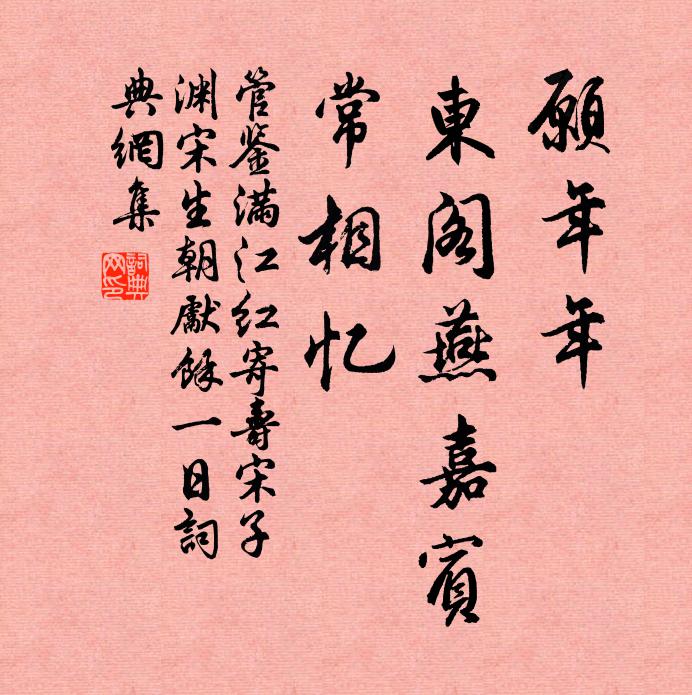 願年年
東阁燕嘉賓
常相忆
管鉴满江红寄壽宋子
渊宋生朝獻餘一日詞
典網集
詞典网印